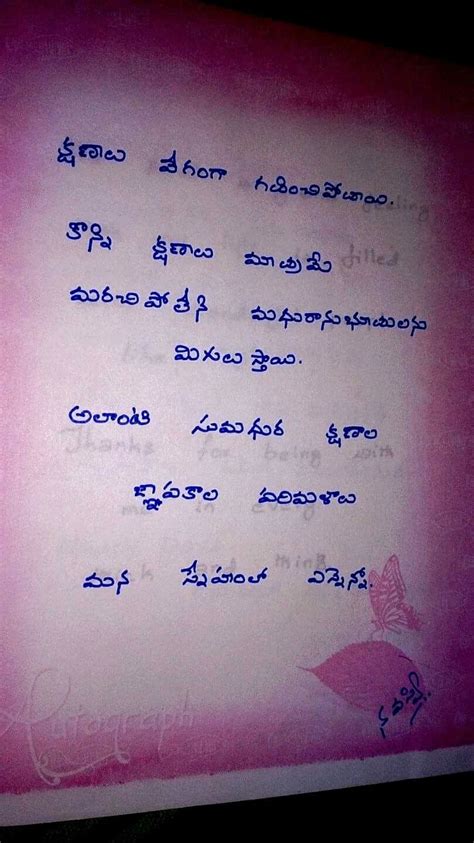 క్షణాలు వేగంగా గడించిపోతాయి.
కొన్ని క్షణాలు మాత్రమే filled
మరచిపోలేని మధురానుభూతులను
మిగులుస్తాయి.
అలాంటి సుమధుర క్షణాల
Thanks for being with
జ్ఞాపకాల పరిమళాలు
me in every
మన స్నేహంలో ఎన్నెన్నో.
and
Autograph